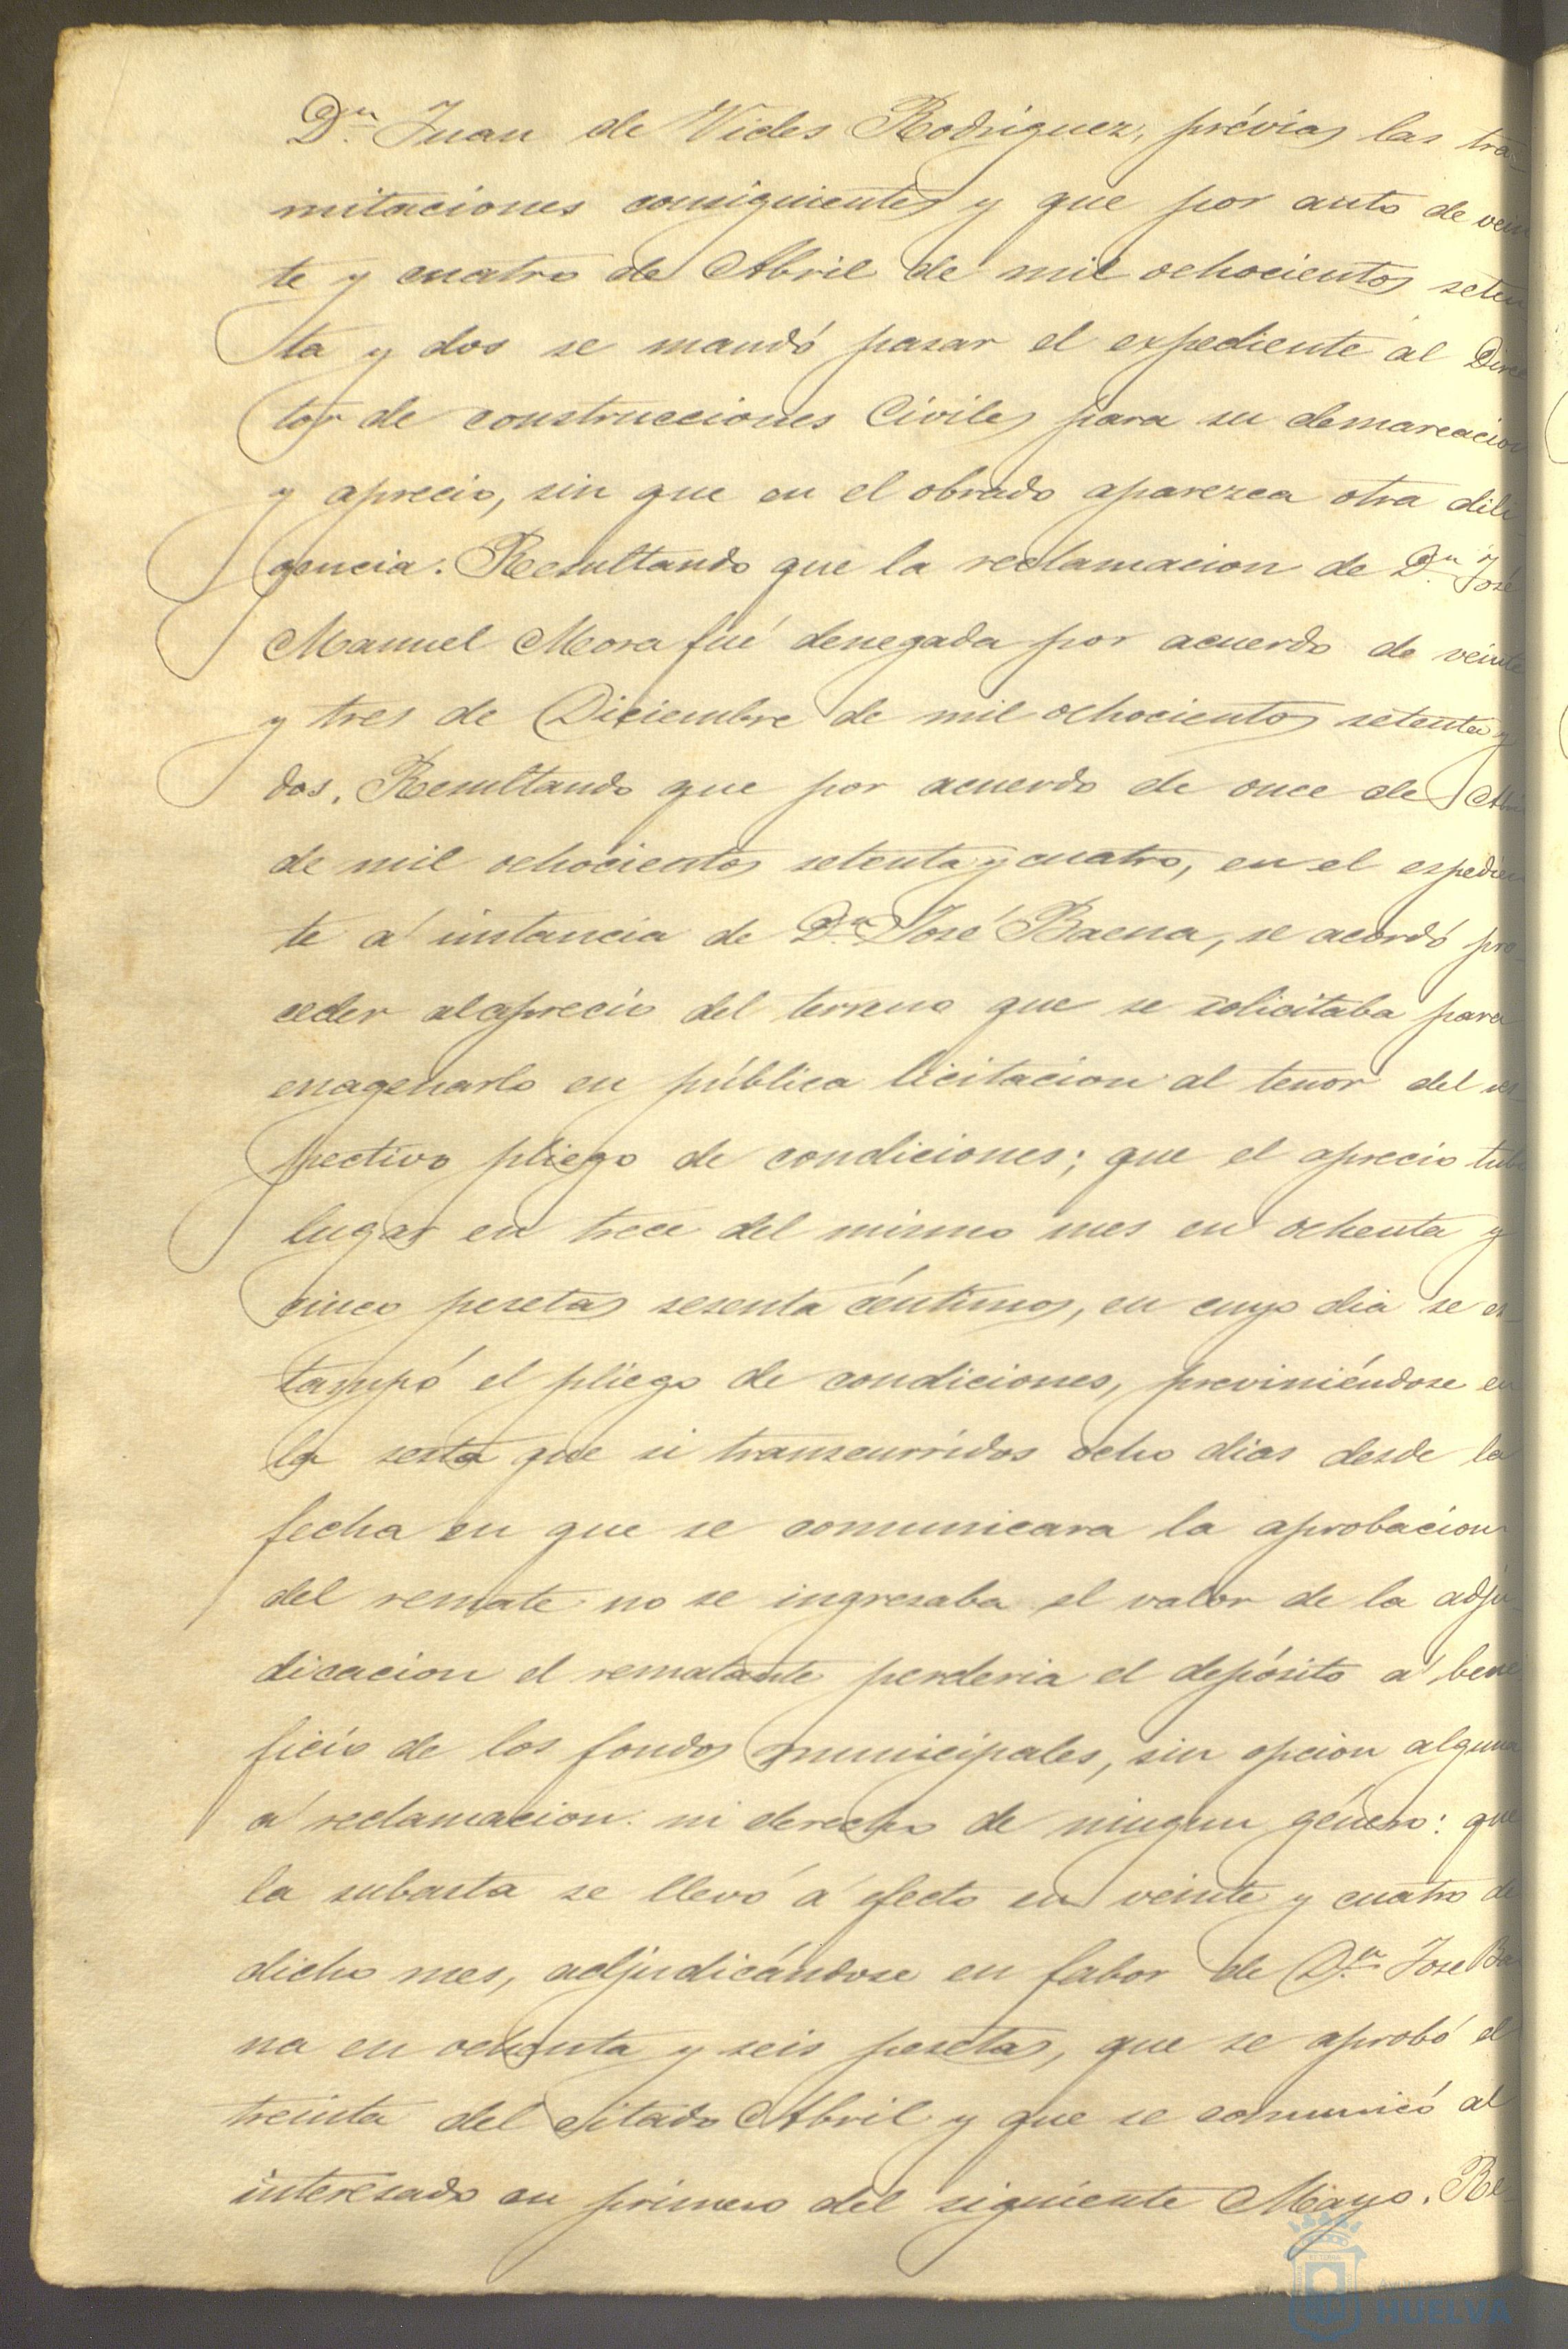 Dn. Juan de Vides Rodriguez, prévias las tra-
mitaciones consiguientes y que por auto de vein
te y cuatro de Abril de mil ochocientos seten
ta y dos se mandó pasar el expediente al Direc
tor de construcciones Civiles para su demarcacion
y aprecio, sin que en el obrado aparezca otra dili
gencia. Resultando que la reclamacion de Dn. José
Manuel Mora fué denegada por acuerdo de veinte
y tres de Diciembre de mil ochocientos setenta y
dos. Resultando que por acuerdo de once de Abril
de mil ochocientos setenta y cuatro, en el espedien
te á instancia de Dn. José Baena, se acordó pro-
ceder al aprecio del terreno que se solicitaba para
enagenarlo en pública licitacion al tenor del res-
pectivo pliego de condiciones; que el aprecio tubo
lugar en trece del mismo mes en ochenta y
cinco pesetas sesenta céntimos, en cuyo dia se es-
tampó el pliego de condiciones, previniéndose en
la sesta que si transcurridos ocho dias desde la
fecha en que se comunicara la aprobacion
del remate no se ingresaba el valor de la adju-
dicacion el rematante perderia el depósito á bene
ficio de los fondos municipales, sin opcion alguna
á reclamacion ni derecho de ningun género: que
la subasta se llevó á efecto en veinte y cuatro de
dicho mes, adjudicándose en fabor de Dn. Jose Bae
na en ochenta y seis pesetas, que se aprobó el
treinta del citado Abril y que se comunicó al
interesado en primero del siguiente Mayo. Re-
HUELVA